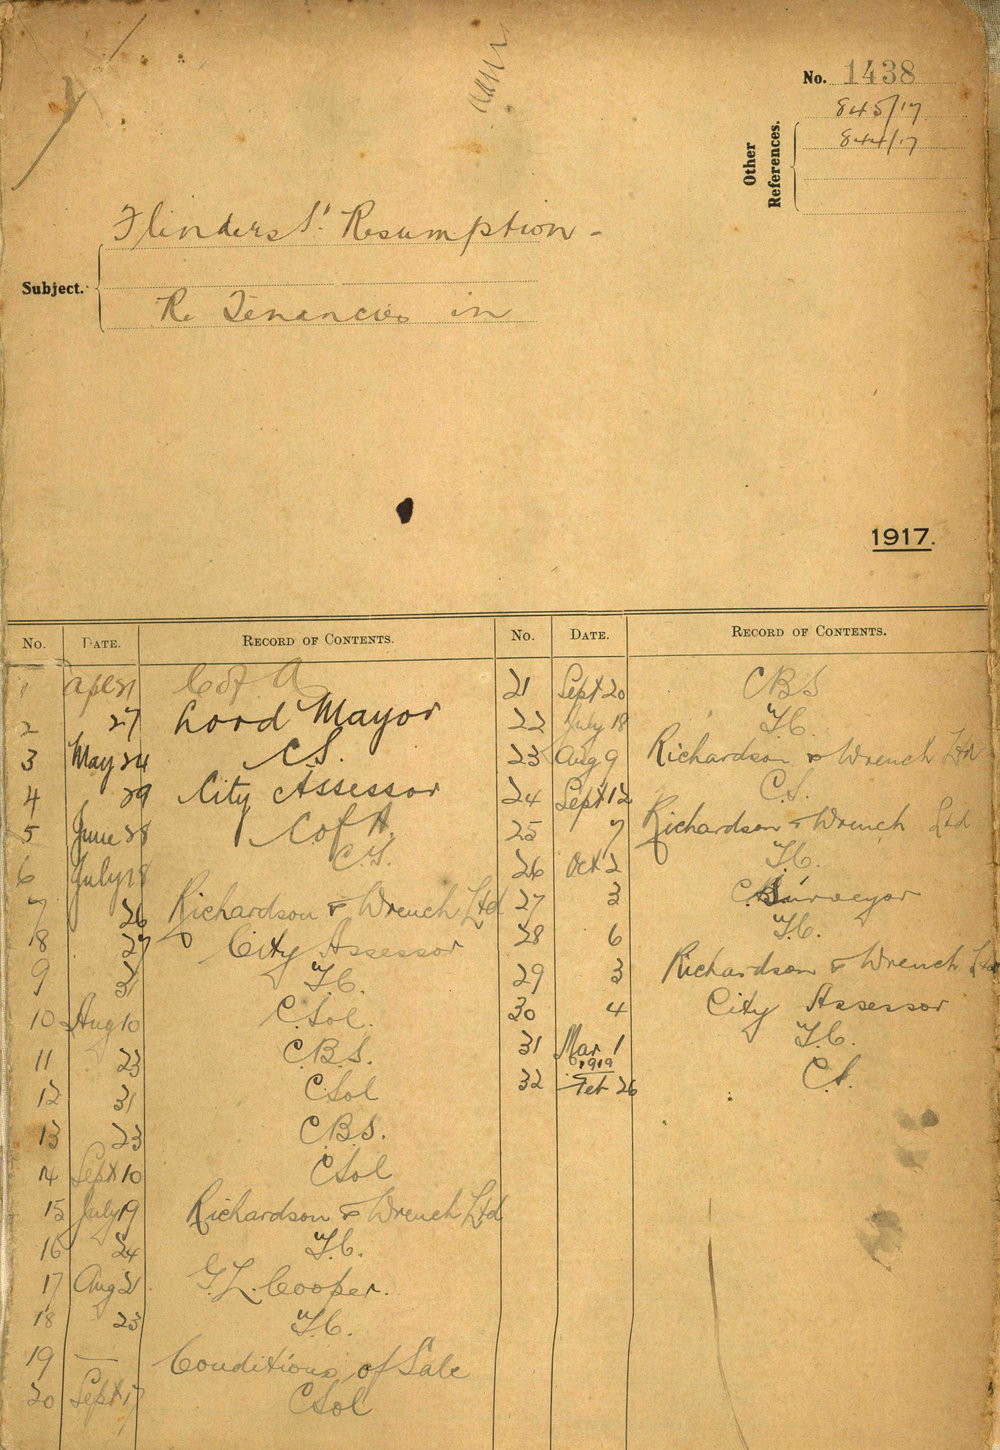 No. 1438
845/17
844/17
Other References.
Flinders St. Resumption -
Subject.
Re Tenancies in
1917.
No. DATE. RECORD OF CONTENTS.
1 Apl 21 C of A
2 27 Lord Mayor
3 May 24 C.S.
4 29 City Assessor
5 June 28 C of A.
6 July 18 C.S.
7 26 Richardson & Wrench Ltd
8 27 City Assessor
9 31 T.C.
10 Aug 10 C.Sol.
11 23 C.B.S.
12 31 C Sol
13 23 C.B.S.
14 Sept 10 C Sol
15 July 19 Richardson & Wrench Ltd
16 24 T.C.
17 Aug 21 G.L. Cooper.
18 23 T.C.
19 — Conditions of Sale
20 Sept 17 C Sol
No. DATE. RECORD OF CONTENTS.
21 Sept 20 CBS
22 July 18 T.C.
23 Aug 9 Richardson & Wrench Ltd
24 Sept 12 C.S.
25 7 Richardson & Wrench Ltd
26 Oct 2 T.C.
27 3 C. Surveyor
28 6 T.C.
29 3 Richardson & Wrench Ltd
30 4 City Assessor
31 Mar 1 T.C.
1919
32 Feb 26 C.S.